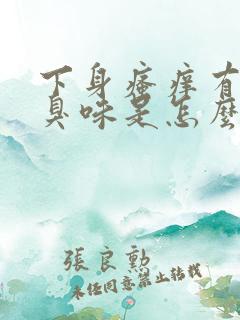 下身瘙痒有
臭味是怎麼
張良勲
未经同意禁止转载